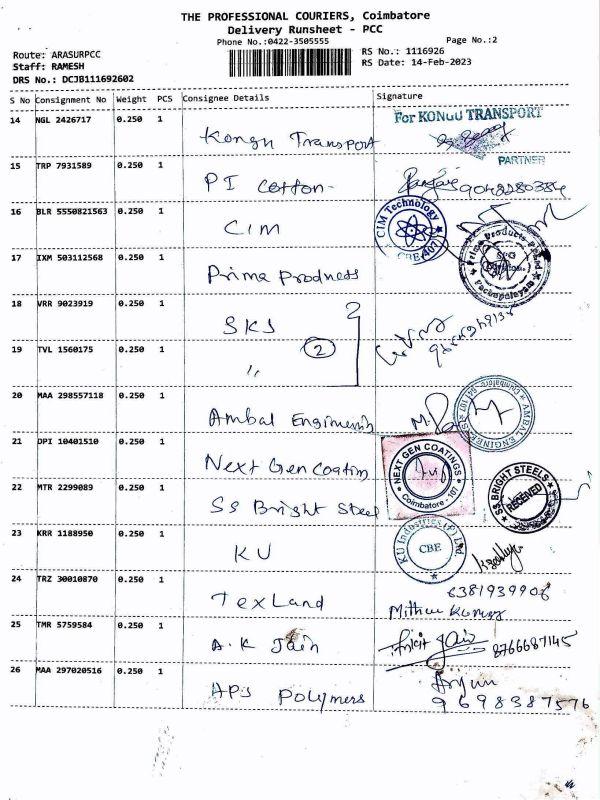 THE PROFESSIONAL COURIERS, Coimbatore
Delivery Runsheet - PCC
Phone No.:0422-3505555
Page No.:2
Route: ARASURPCC
Staff: RAMESH
DRS No.: DCJB111692602
RS No.: 1116926
RS Date: 14-Feb-2023
S No Consignment No Weight PCS Consignee Details Signature
14 NGL 2426717 0.250 1 Kongu Transport
For KONGU TRANSPORT
PARTNER
15 TRP 7931589 0.250 1 PI Cotton-
9048280384
16 BLR 5550821563 0.250 1 CIM
CIM Technology
CBE 407
17 IXM 503112568 0.250 1 Prima Products
18 VRR 9023919 0.250 1 SKS
2
19 TVL 1560175 0.250 1 "
20 MAA 298557118 0.250 1 Ambal Engineering
AMBAL ENGINEERS
21 DPI 10401510 0.250 1 Next Gen Coating
NEXT GEN COATINGS
Coimbatore - 107
22 MTR 2299089 0.250 1 SS Bright Steel
SS BRIGHT STEELS
RECEIVED
23 KRR 1188950 0.250 1 KU
KU Industries (P) Ltd.
CBE
24 TRZ 30010870 0.250 1 TexLand
6381939906
25 TMR 5759584 0.250 1 A.K Jain
8766687145
26 MAA 297020516 0.250 1 APS Polymers
Arjun
9698387576